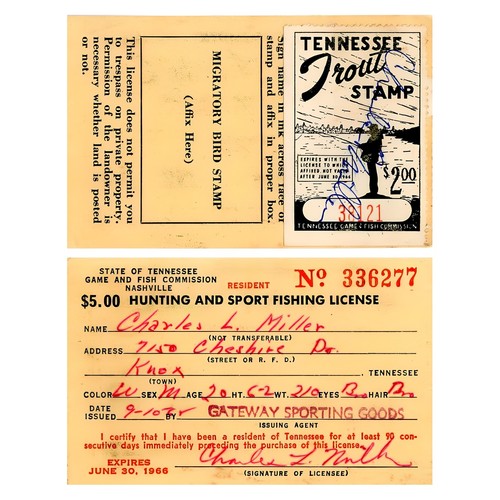 This license does not permit you
to trespass on private property.
Permission of the landowner is
necessary whether land is posted
or not.
MIGRATORY BIRD STAMP
(Affix Here)
Sign name in ink across face of
stamp and affix in proper box.
TENNESSEE
Trout
STAMP
EXPIRES WITH THE
LICENSE TO WHICH
AFFIXED. NOT VALID
AFTER JUNE 30, 1966
$2.00
TENNESSEE GAME & FISH COMMISSION
STATE OF TENNESSEE
GAME AND FISH COMMISSION
NASHVILLE
RESIDENT
No. 336277
$5.00 HUNTING AND SPORT FISHING LICENSE
NAME Charles L. Miller
(NOT TRANSFERABLE)
ADDRESS 7150 Cheshire Dr.
(STREET OR R. F. D.)
Knox, TENNESSEE
(TOWN)
COLOR W SEX M AGE 20 HT. 6-2 WT. 210 EYES Bro HAIR Bro
DATE ISSUED 9-10-65 GATEWAY SPORTING GOODS
ISSUING AGENT
I certify that I have been a resident of Tennessee for at least 90 con-
secutive days immediately preceding the purchase of this license.
EXPIRES
JUNE 30, 1966
Charles L. Miller
(SIGNATURE OF LICENSEE)